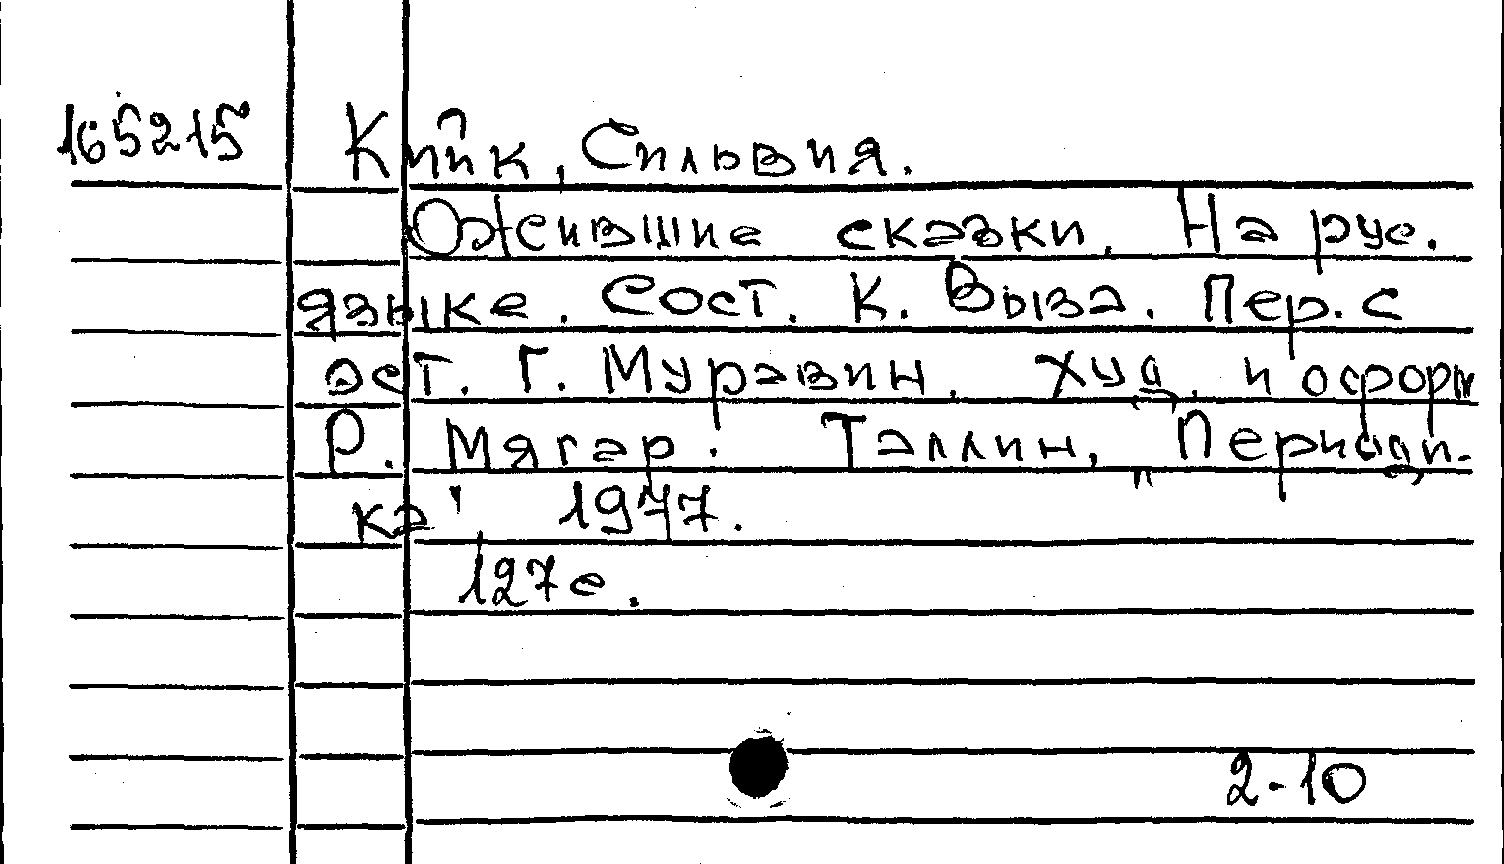 165215 Кийк, Сильвия.
Ожившие сказки. На рус.
языке. Сост. К. Выза. Пер. с
эст. Г. Муравин. Худ. и оформ
Р. Мягар. Таллин, „Периоди-
ка" 1977.
127с.
2-10